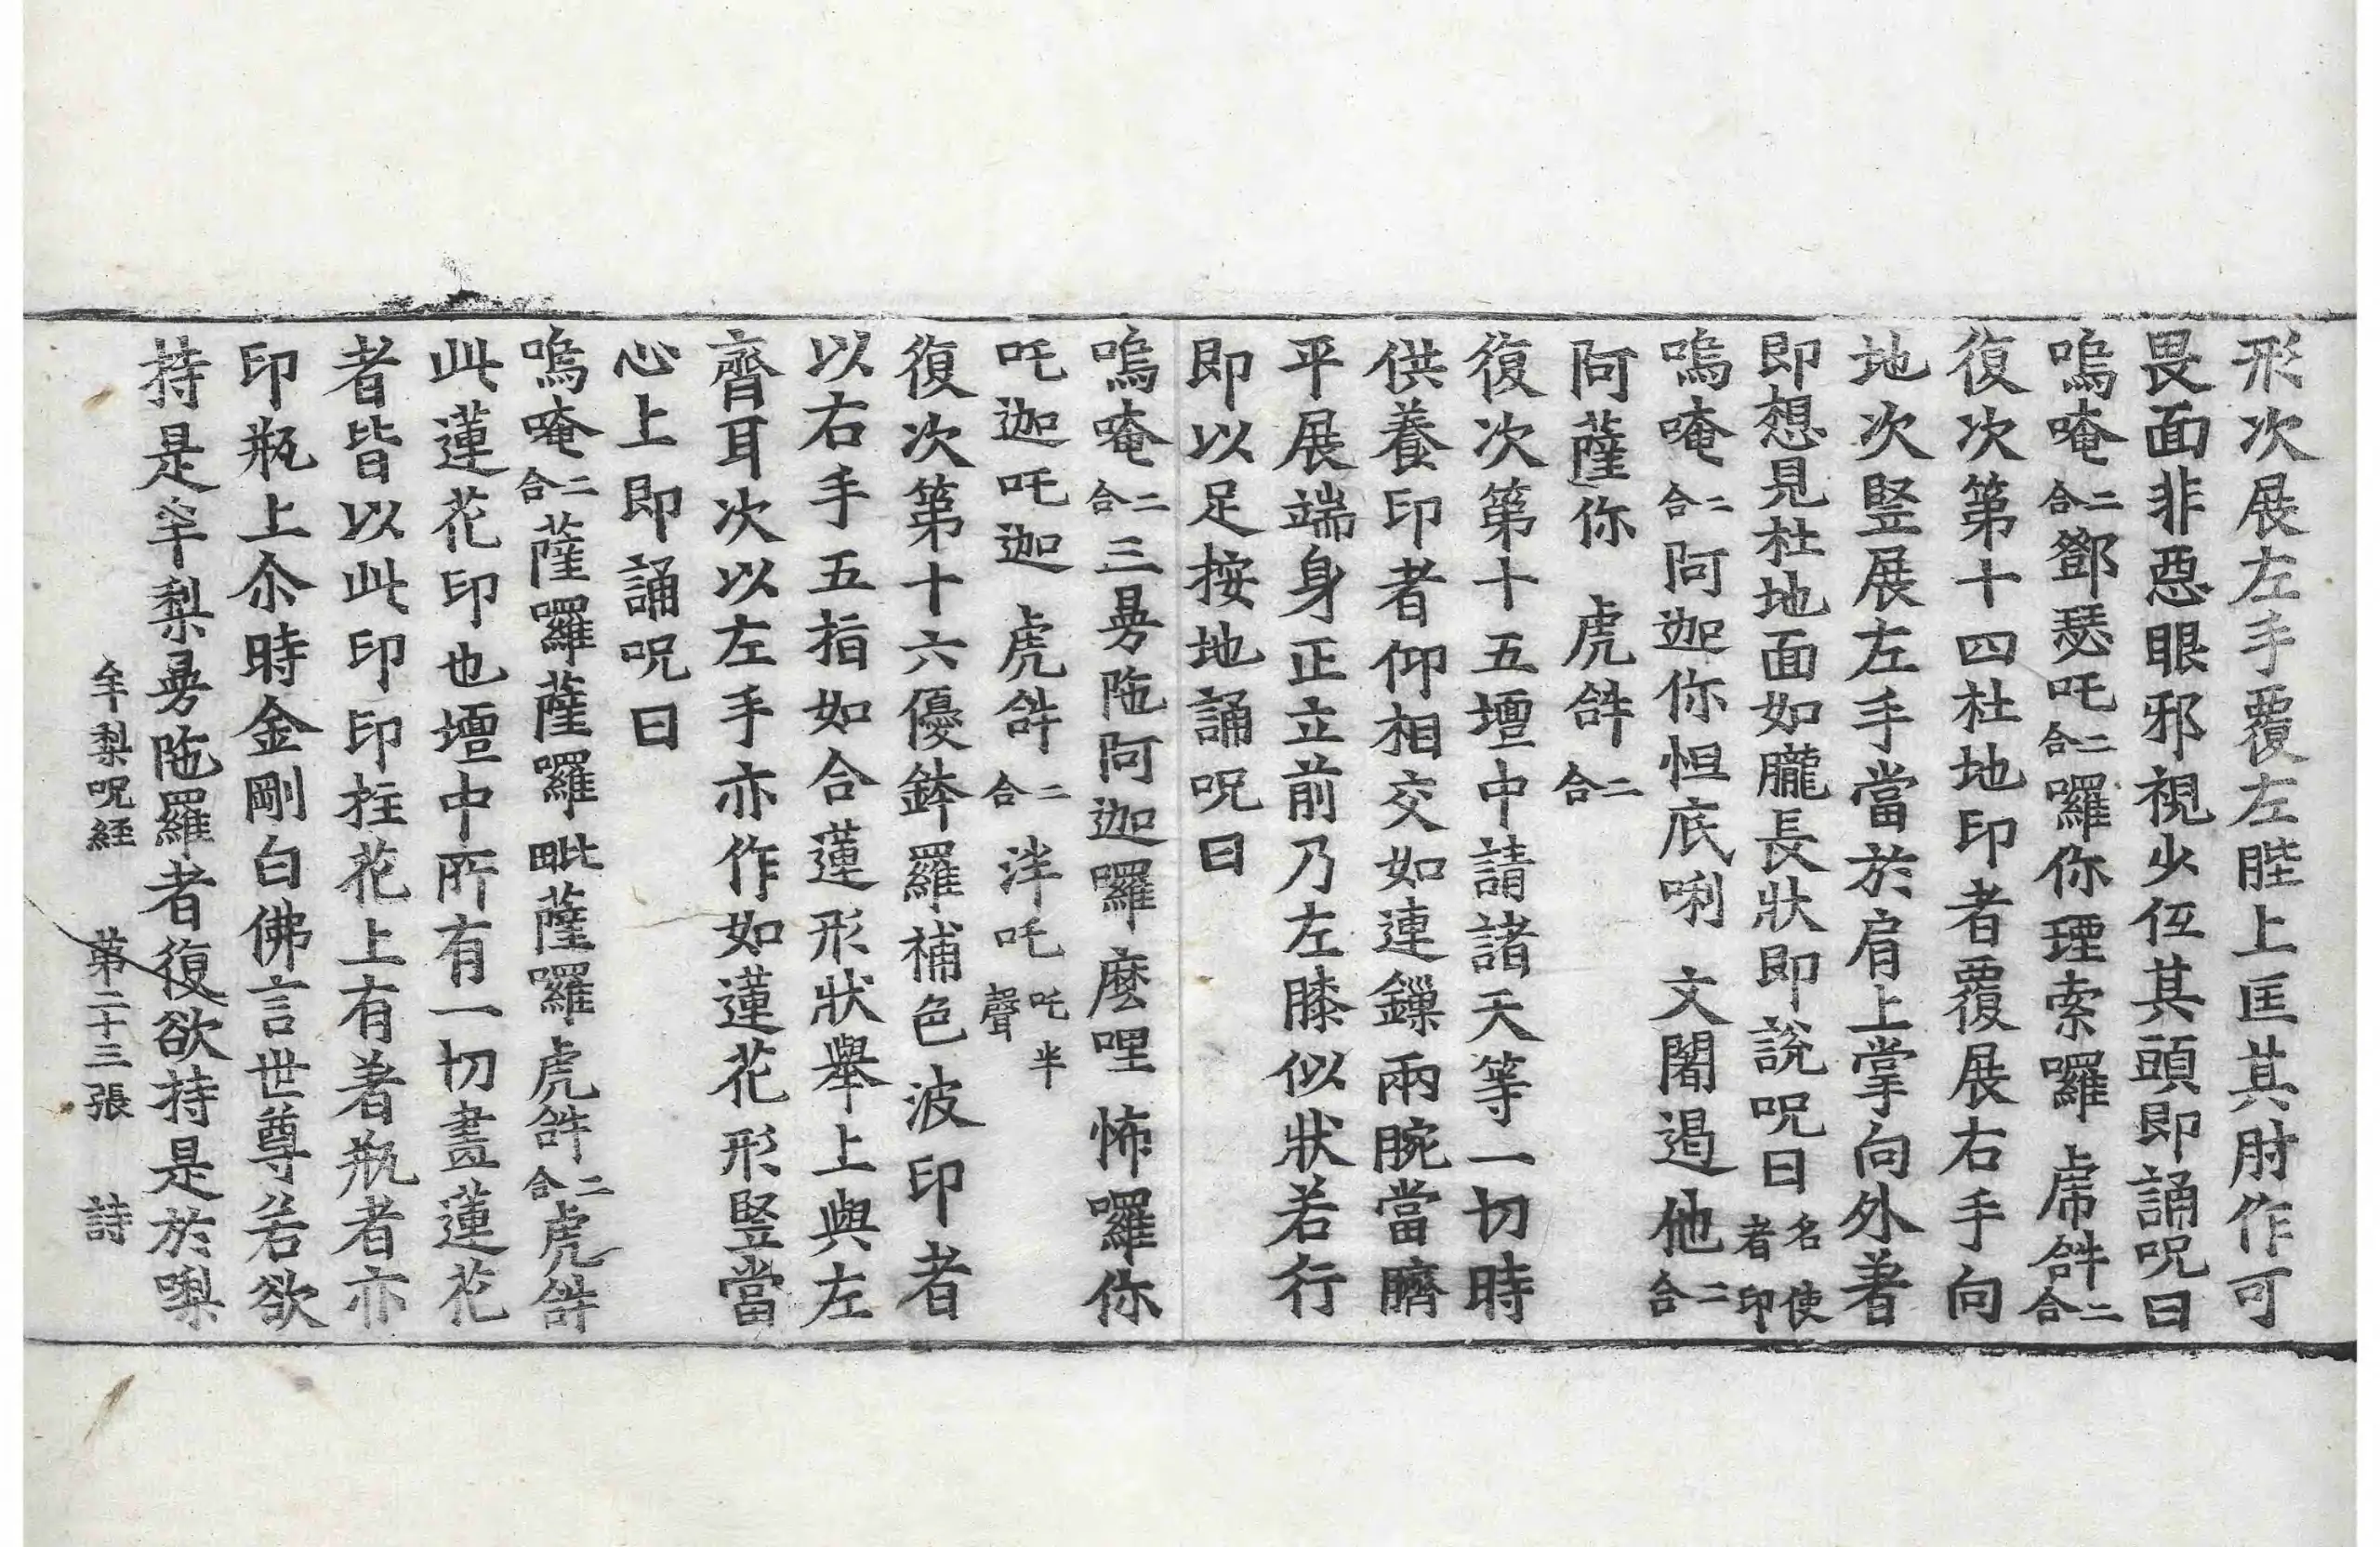 形次展左手覆左䏶上匡其肘作可
畏面非惡眼邪視少伍其頭即誦呪曰
嗚唵二合鄧瑟吒二合囉你理索囉虎𤙖二合
復次第十四杜地印者覆展右手向
地次竪展左手當於肩上掌向外著
即想見杜地面如朧長狀即說呪曰名使者印
嗚唵二合阿迦你怛底唎文闍遏他二合
阿薩你虎𤙖二合
復次第十五壇中請諸天等一切時
供養印者仰相交如連鏁兩腕當臍
平展端身正立前乃左膝似狀若行
即以足按地誦呪曰
嗚唵二合三曼陁阿迦囉麼哩怖囉你
吒迦吒迦虎𤙖二合泮吒吒半聲
復次第十六優鉢羅補色波印者
以右手五指如合蓮形狀舉上與左
齊耳次以左手亦作如蓮花形竪當
心上即誦呪曰
嗚唵二合薩囉薩囉毗薩囉虎𤙖二合虎𤙖
此蓮花印也壇中所有一切盡蓮花
者皆以此印印拄花上有著瓶者亦
印瓶上尒時金剛白佛言世尊若欲
持是牟梨曼陁羅者復欲持是於㗚
牟梨呪經 第二十三張 詩